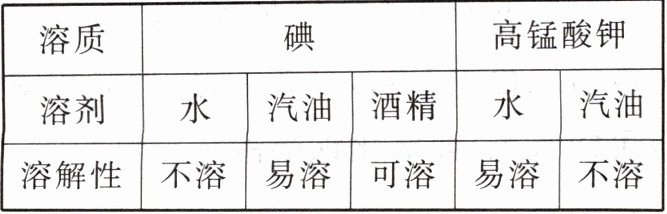 溶质 碘 高锰酸钾
溶剂 水 汽油 酒精 水 汽油
溶解性 不溶 易溶 可溶 易溶 不溶